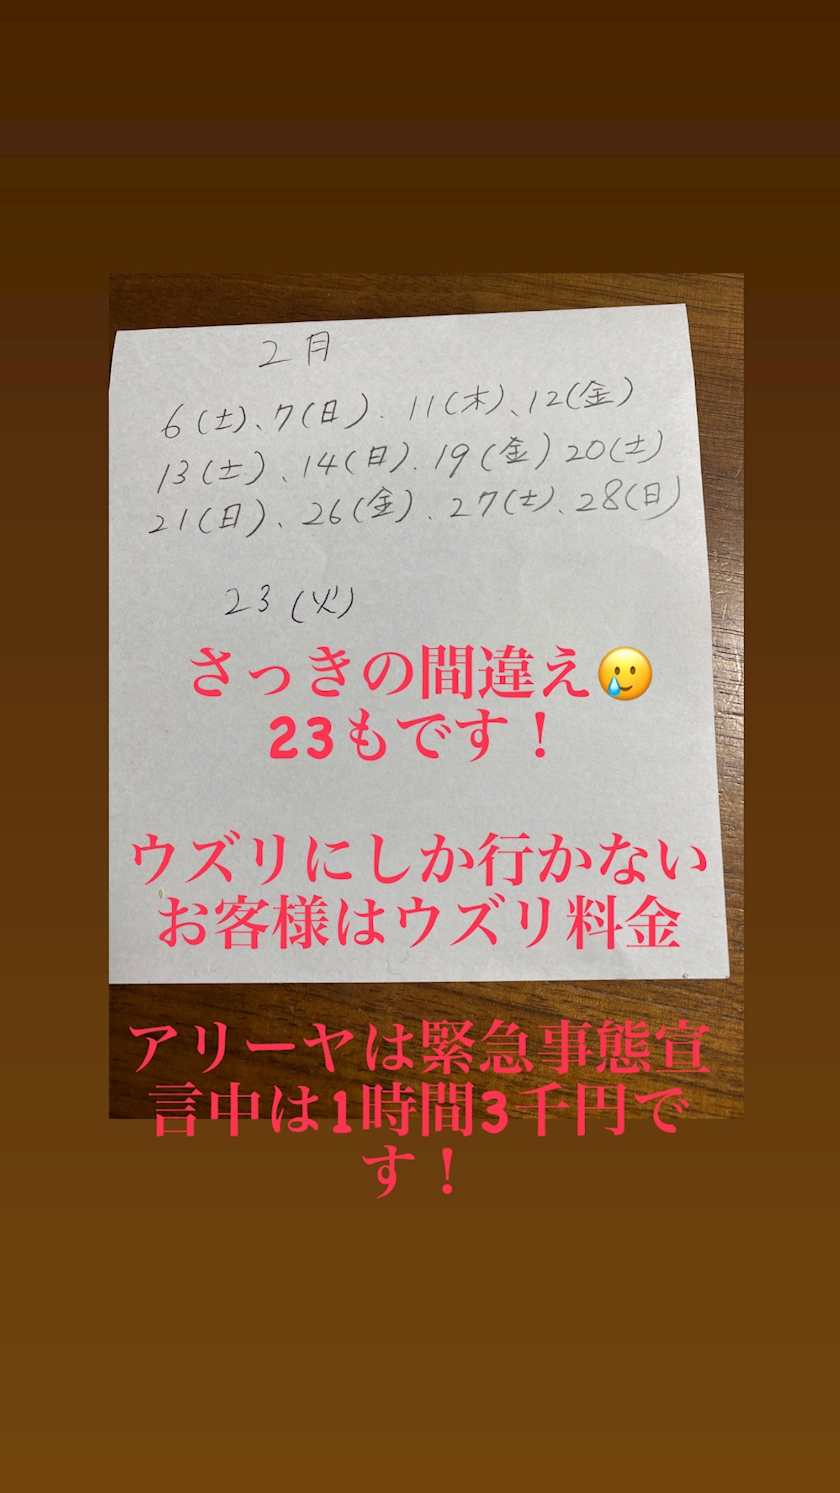 2月
6(土)、7(日)、11(木)、12(金)
13(土)、14(日)、19(金)20(土)
21(日)、26(金)、27(土)、28(日)
23(火)
さっきの間違え🥲
23もです！
ウズリにしか行かない
お客様はウズリ料金
アリーヤは緊急事態宣
言中は1時間3千円で
す！